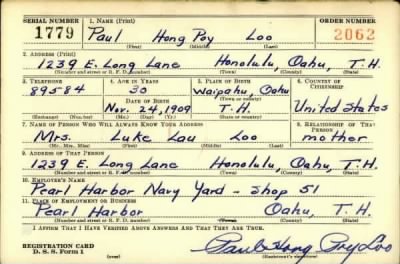 SERIAL NUMBER 1. NAME (Print) ORDER NUMBER
1779 Paul Hong Poy Loo 2062
(First) (Middle) (Last)
2. ADDRESS (Print)
1239 E. Long Lane Honolulu, Oahu, T.H.
(Number and street or R. F. D. number) (Town) (County) (State)
3. TELEPHONE 4. AGE IN YEARS 5. PLACE OF BIRTH 6. COUNTRY OF CITIZENSHIP
89584 30 Waipahu, Oahu
DATE OF BIRTH (Town or county)
Nov. 24, 1909 T.H. United States
(Mo.) (Day) (Yr.) (State or country)
7. NAME OF PERSON WHO WILL ALWAYS KNOW YOUR ADDRESS 8. RELATIONSHIP OF THAT PERSON
Mrs. Luke Lau Loo mother
(Mr., Mrs., Miss) (First) (Middle) (Last)
9. ADDRESS OF THAT PERSON
1239 E. Long Lane Honolulu, Oahu, T.H.
(Number and street or R. F. D. number) (Town) (County) (State)
10. EMPLOYER'S NAME
Pearl Harbor Navy Yard - Shop 51
11. PLACE OF EMPLOYMENT OR BUSINESS
Pearl Harbor Oahu, T.H.
(Number and street or R. F. D. number) (Town) (County) (State)
I AFFIRM THAT I HAVE VERIFIED ABOVE ANSWERS AND THAT THEY ARE TRUE.
REGISTRATION CARD
D. S. S. Form 1 Paul Hong Poy Loo
(Registrant's signature)